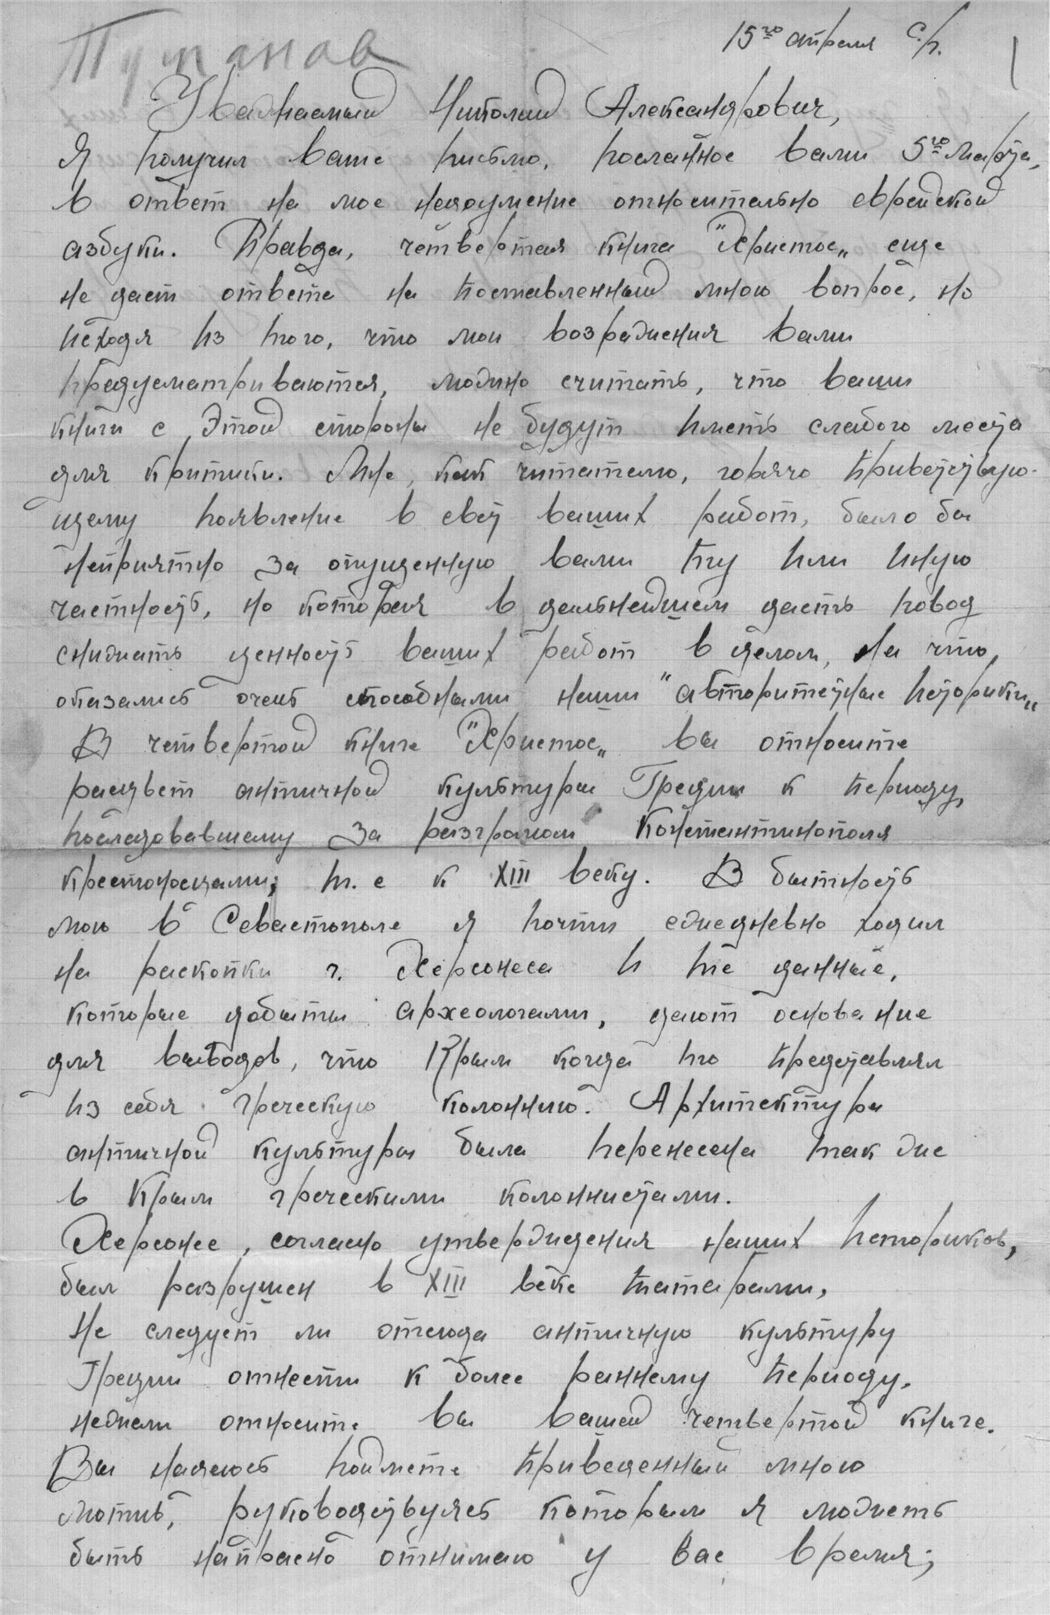 Туманов
15го апреля с.г.
Уважаемый Николай Александрович,
Я получил ваше письмо, посланное вами 5го марта,
в ответ на мое недоумение относительно еврейской
азбуки. Правда, четвертая книга "Христос" еще
не дает ответа на поставленный мною вопрос, но
исходя из того, что мои возражения вами
предусматриваются, можно считать, что ваши
книги с этой стороны не будут иметь слабого места
для критики. Мне, как читателю, горячо приветствую-
щему появление в свет ваших работ, было бы
неприятно за опущенную вами ту или иную
частность, но которая в дальнейшем даст повод
снижать ценность ваших работ в целом, на что,
оказались очень способными наши "авторитетные историки"
В четвертой книге "Христос" вы относите
расцвет античной культуры Греции к периоду,
последовавшему за разгромом Константинополя
крестоносцами, т. е к XIII веку. В бытность
мою в Севастополе я почти ежедневно ходил
на раскопки г. Херсонеса и те данные,
которые добыты археологами, дают основание
для выводов, что Крым когда то представлял
из себя греческую колонию. Архитектура
античной культуры была перенесена так же
в Крым греческими колонистами.
Херсонес, согласно утверждения наших историков,
был разрушен в XIII веке татарами.
Не следует ли отсюда античную культуру
Греции отнести к более раннему периоду,
нежели относите вы в вашей четвертой книге.
Вы надеюсь поймете приведенный мною
мотив, руководствуясь которым я может
быть напрасно отнимаю у вас время;